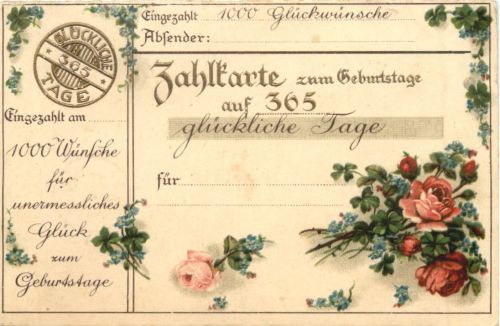 GLÜCKLICHE
365
TAGE
Eingezahlt 1000 Glückwünsche
Absender:
Zahlkarte zum Geburtstage
auf 365
glückliche Tage
für
Eingezahlt am
1000 Wünsche
für
unermessliches
Glück
zum
Geburtstage